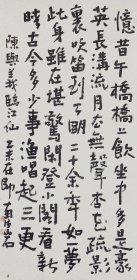 憶昔午橋橋上飲坐中多是豪
英長溝流月去無聲杏花疏影
裏吹笛到天明二十余年如一夢
此身雖在堪驚閑登閣看新
晴古今多少事漁唱起三更
陳與義臨江仙